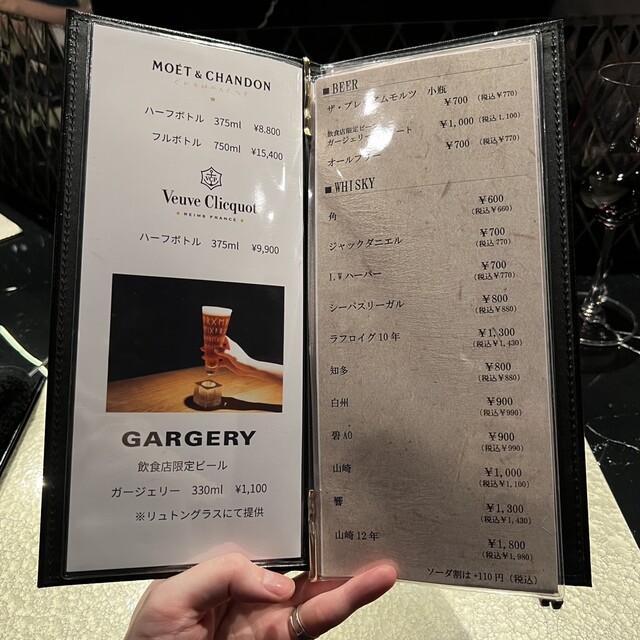 MOËT & CHANDON
CHAMPAGNE
ハーフボトル 375ml ¥8,800
フルボトル 750ml ¥15,400
Veuve Clicquot
REIMS FRANCE
ハーフボトル 375ml ¥9,900
GARGERY
飲食店限定ビール
ガージェリー 330ml ¥1,100
※リュトングラスにて提供
■BEER
ザ・プレミアムモルツ 小瓶
¥700 (税込¥770)
飲食店限定ビール
ガージェリー ¥1,000 (税込1,100)
オールフリー ¥700 (税込¥770)
■WHISKY
角 ¥600
(税込¥660)
ジャックダニエル ¥700
(税込770)
I.Wハーパー ¥700
(税込¥770)
シーバスリーガル ¥800
(税込¥880)
ラフロイグ10年 ¥1,300
(税込¥1,430)
知多 ¥800
(税込¥880)
白州 ¥900
(税込¥990)
碧AO ¥900
(税込¥990)
山崎 ¥1,000
(税込¥1,100)
響 ¥1,300
(税込¥1,430)
山崎12年 ¥1,800
(税込¥1,980)
ソーダ割は+110円(税込)